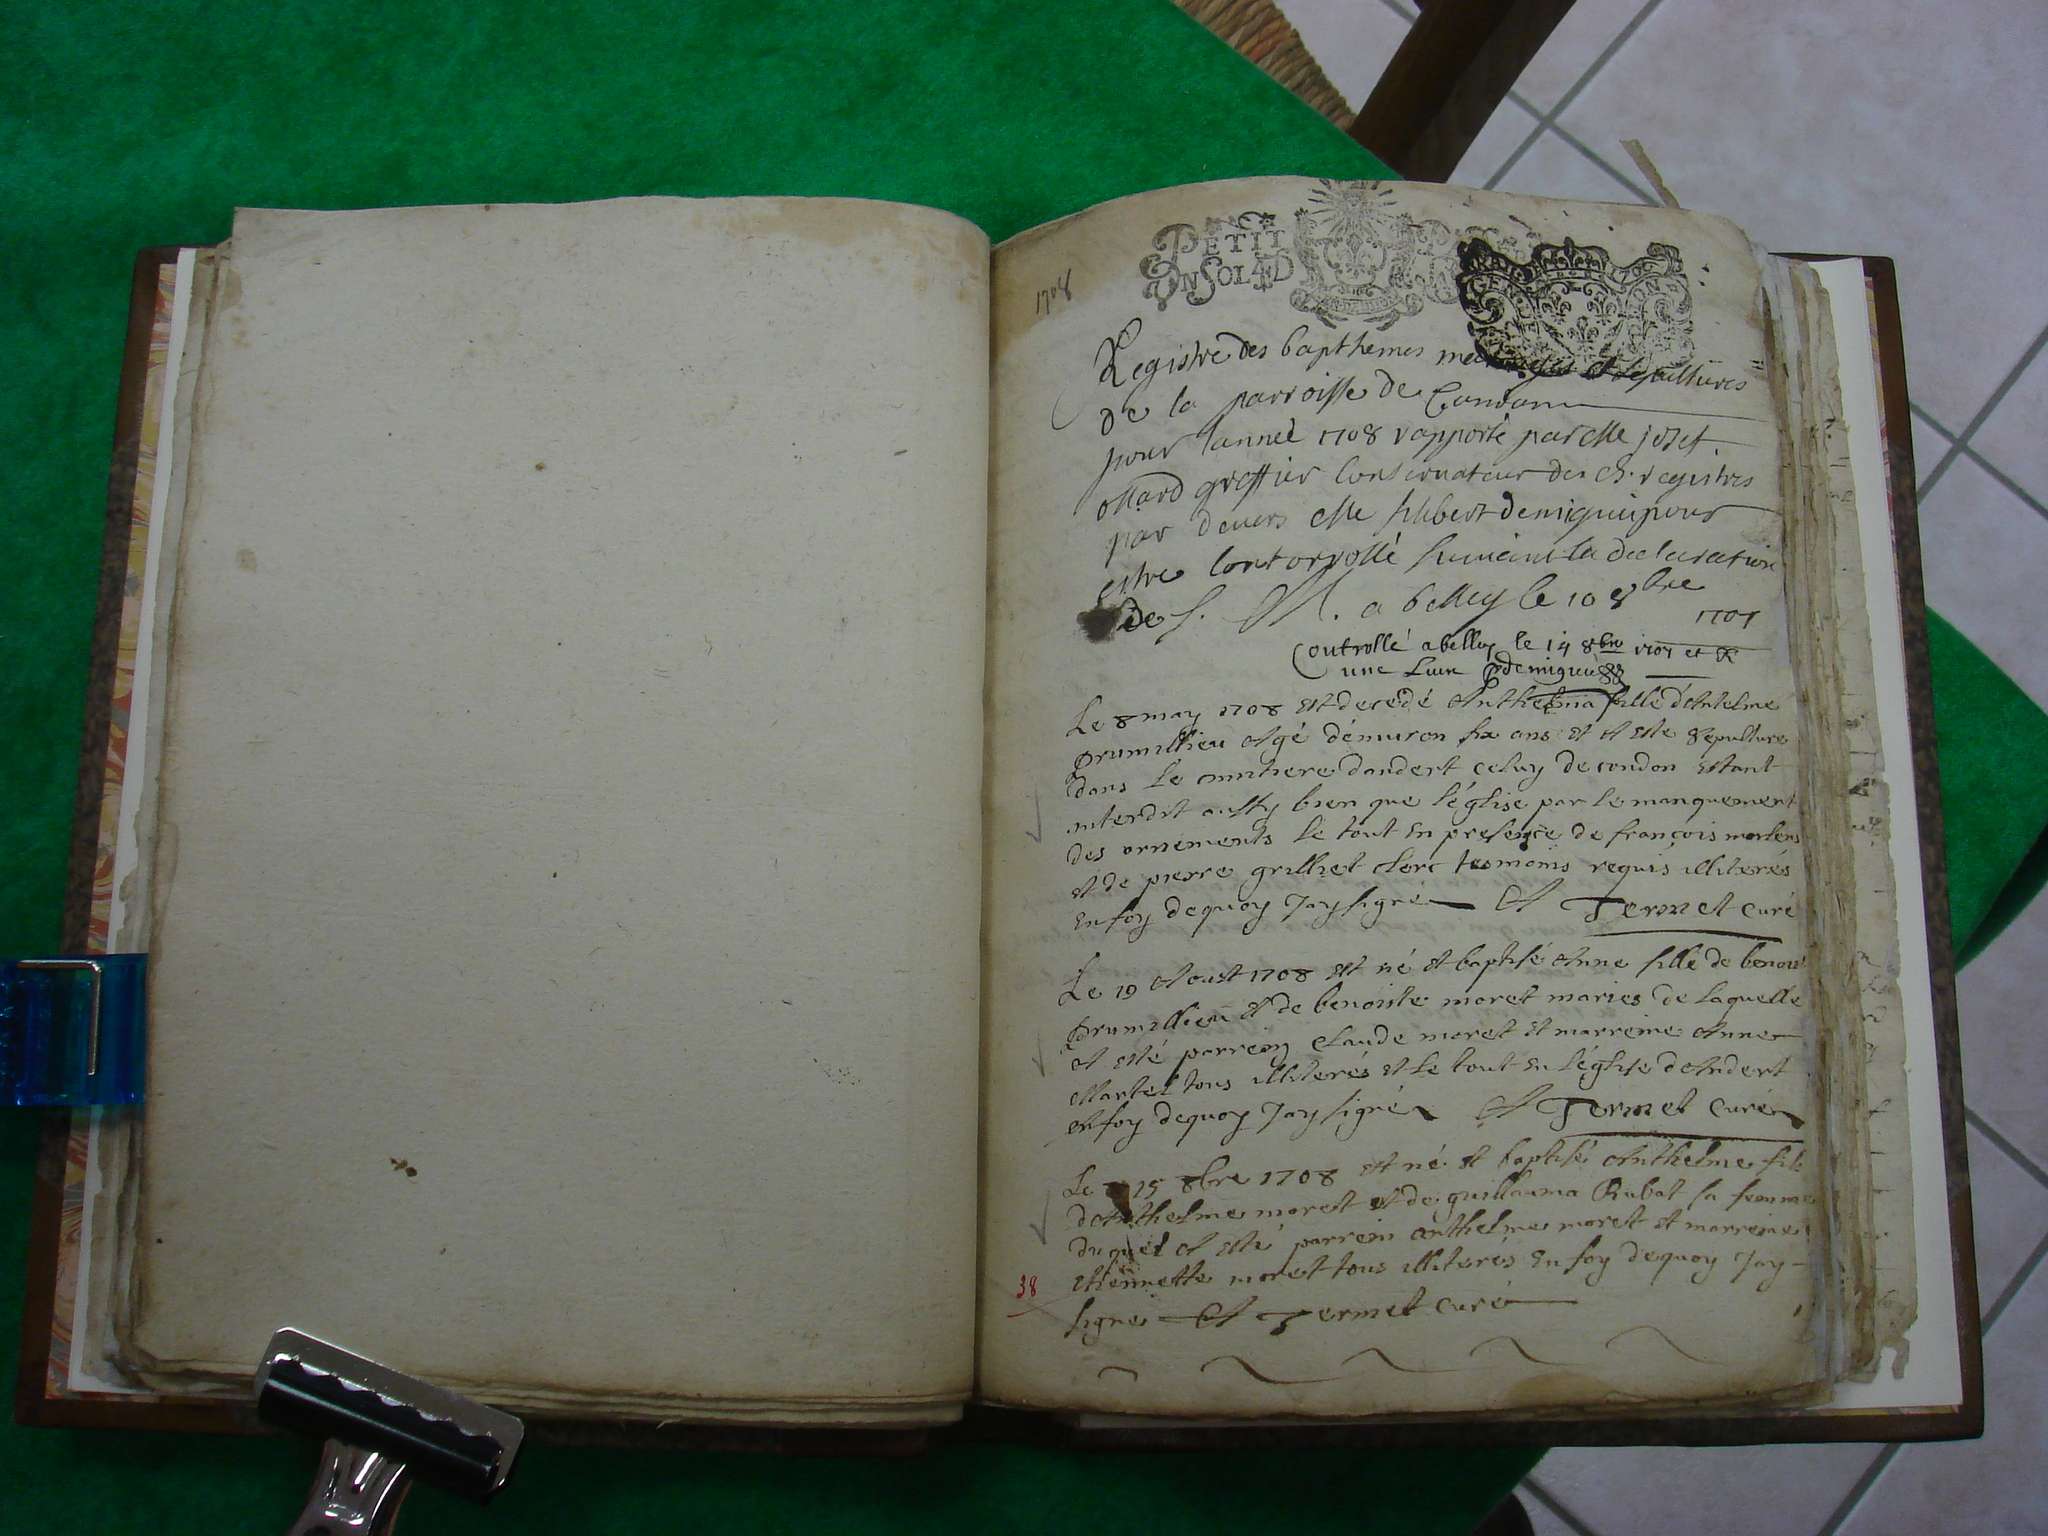 1708
PETIT
UN SOL 4D
GEN
Registre des bapthemes mariages et sepultures
de la parroisse de Condon
pour lannee 1708 rapporté par Me josef
greffier Conservateur des registres
par devers Me filibert demigieu pour
estre Contorrollé suivant la declaration
de S. M. a belley le 10 8bre
1707
Controllé a belley le 14 8bre 1707 et R
une Livre demigieu
Le 8 may 1708 est decedé Anthelma fille dAntelme
prumillieu Agé démviron six ans et A este sepulture
dans Le cimitiere dandert celuy de condon estant
interdit aussy bien que léglise par le manquement
des ornements Le tout En presence de françois
et de pierre grilliet clerc tesmoins requis illiterés
En foy dequoy Jay signé A Termet curé
Le 19 Aoust 1708 est né et baptisé Anne fille de benoit
prumillieu et de benoiste moret maries de Laquelle
A esté parrein Claude moret et marreine Anne
Martel tous illiterés et Le tout En léglise dAndert
En foy dequoy Jay signé A Termet Curé
Le 15 8bre 1708 est né et baptisé Anthelme fils
dAnthelme moret et de guillauma Rubat sa femme
duquel A esté parrein anthelme moret et marreine
Etiennette moret tous illiterés En foy dequoy Jay
38
signé A Termet Curé